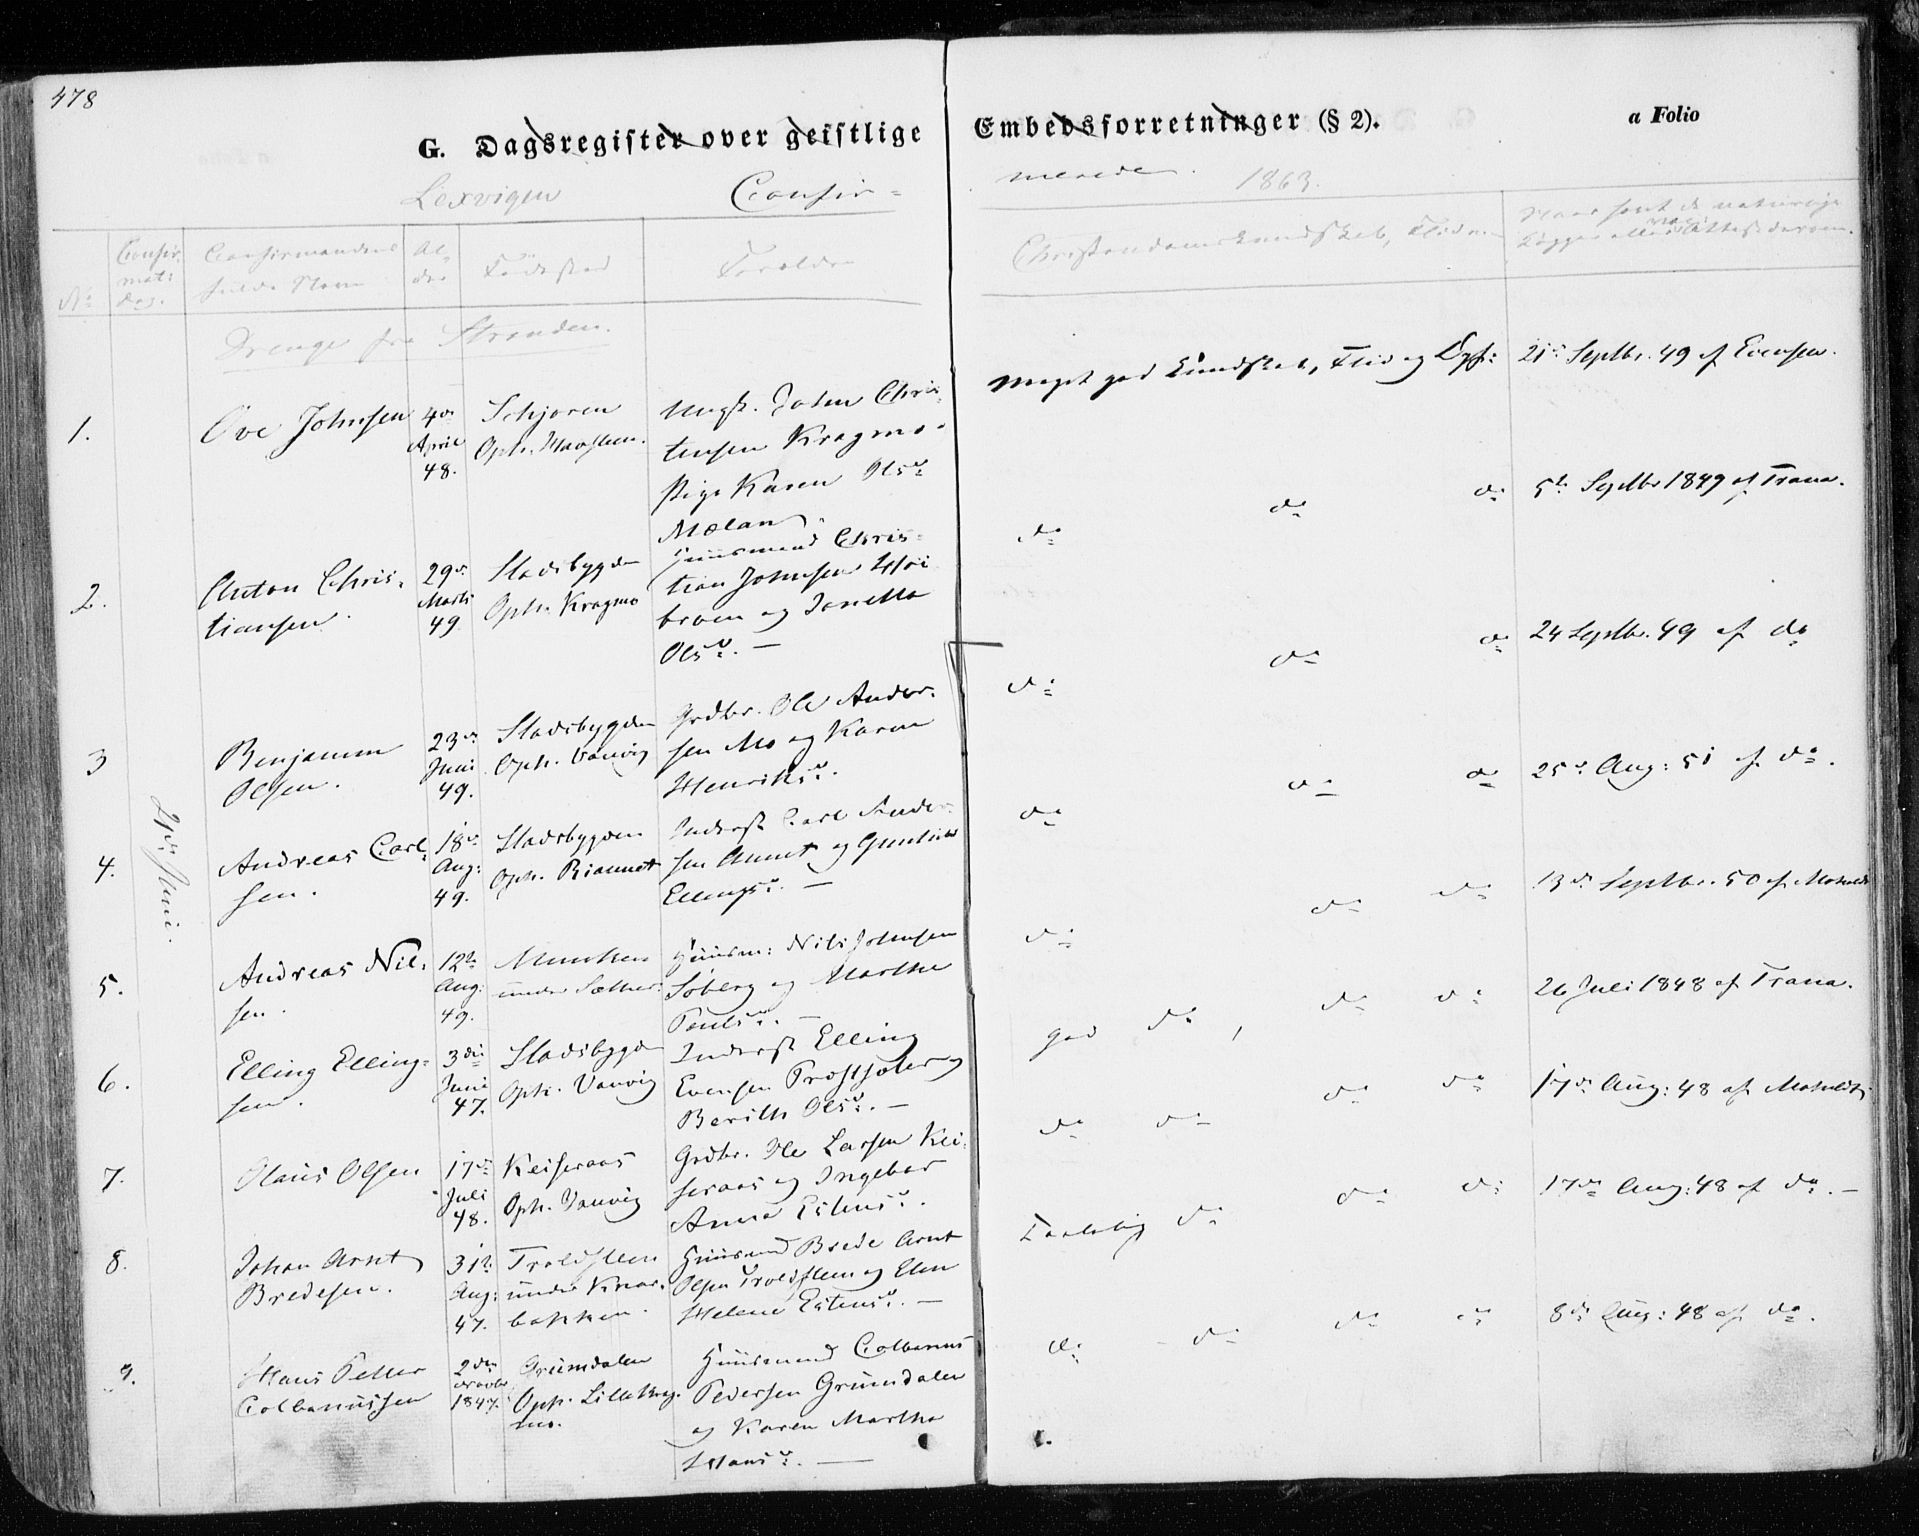 478
G. Dagsregister over geistlige Embedsforretninger (§ 2).
a Folio
Lexvigen Confir=
merede. 1863.
No
Confir.
mat:
dag.
Confirmandens
fulde Navn
Al-
der
Födested
Forældre
Christendomskundskab, Flid
Naar havt de naturlige
Kopper eller vac: Attest derom.
Drenge fra Stranden.
21de Juni.
1.
Ove Johnsen
4de
April
48.
Schjeren
Oph.
Ungk. John Chris-
tensen Kragmo.
Pige Karen Olsd:
Mælan.
Meget god Kundskab, Flid og Opf:
21de Septbr. 49 af Evensen.
2.
Anton Chris-
tiansen.
29de
Marts
49.
Stadsbygden
Oph. Kragmo
Huusmand Chris-
tian Johnsen
og Janetta
Olsd:. —
do do do
5te Septbr 1849 af Trana.
3
Benjamin
Olsen.
23de
Juni
49.
Stadsbygden
Oph. Vanvig
Grdbr. Ole Ander-
sen Mo og Karen
Henriksd:.
do do do
24 Septbr. 49 af do
4.
Andreas Carl-
sen.
18de
Aug:
49.
Stadsbygden
Oph.
Inderst Carl Ander-
sen og
Ellingsd:. —
do do do
25de Aug: 51 af do.
5.
Andreas Nil-
sen.
12te
Aug:
49.
under Sæther.
Huusm: Nils Johnsen
Soberg og Marthe
Paulsd:. —
do do do
13de Septbr. 50 af
6.
Elling Elling-
sen.
3die
Juni
47.
Stadsbygden
Oph. Vanvig
Inderst Elling
Evensen og
Berith Olsd:. —
god do, do do
26 Juli 1848 af Trana.
7.
Olaus Olsen
17de
Juli
48.
Keiseraas
Oph. Vanvig
Grdbr. Ole Larsen Kei-
seraas og Ingebor
Anna Estensd:.
do do do do
17de Aug: 48 af
8.
Johan Arnt
Bredesen.
31te
Aug:
47.
Troldsteen
under Knar-
bakken.
Huusmd Brede Arnt
Olsen Troldsteen og Elen
Helene Estensd:. —
Taalelig do do do
17de Aug: 48 af do. —
9.
Hans Petter
Colbanussen
2den
Novbr
1847.
Griimdalen
Oph. Lille Krag-
mo.
Huusmand Colbanus
Pedersen Griimdalen
og Karen Martha
Hansd:. —
do do do do
8de Aug: 48 af do.